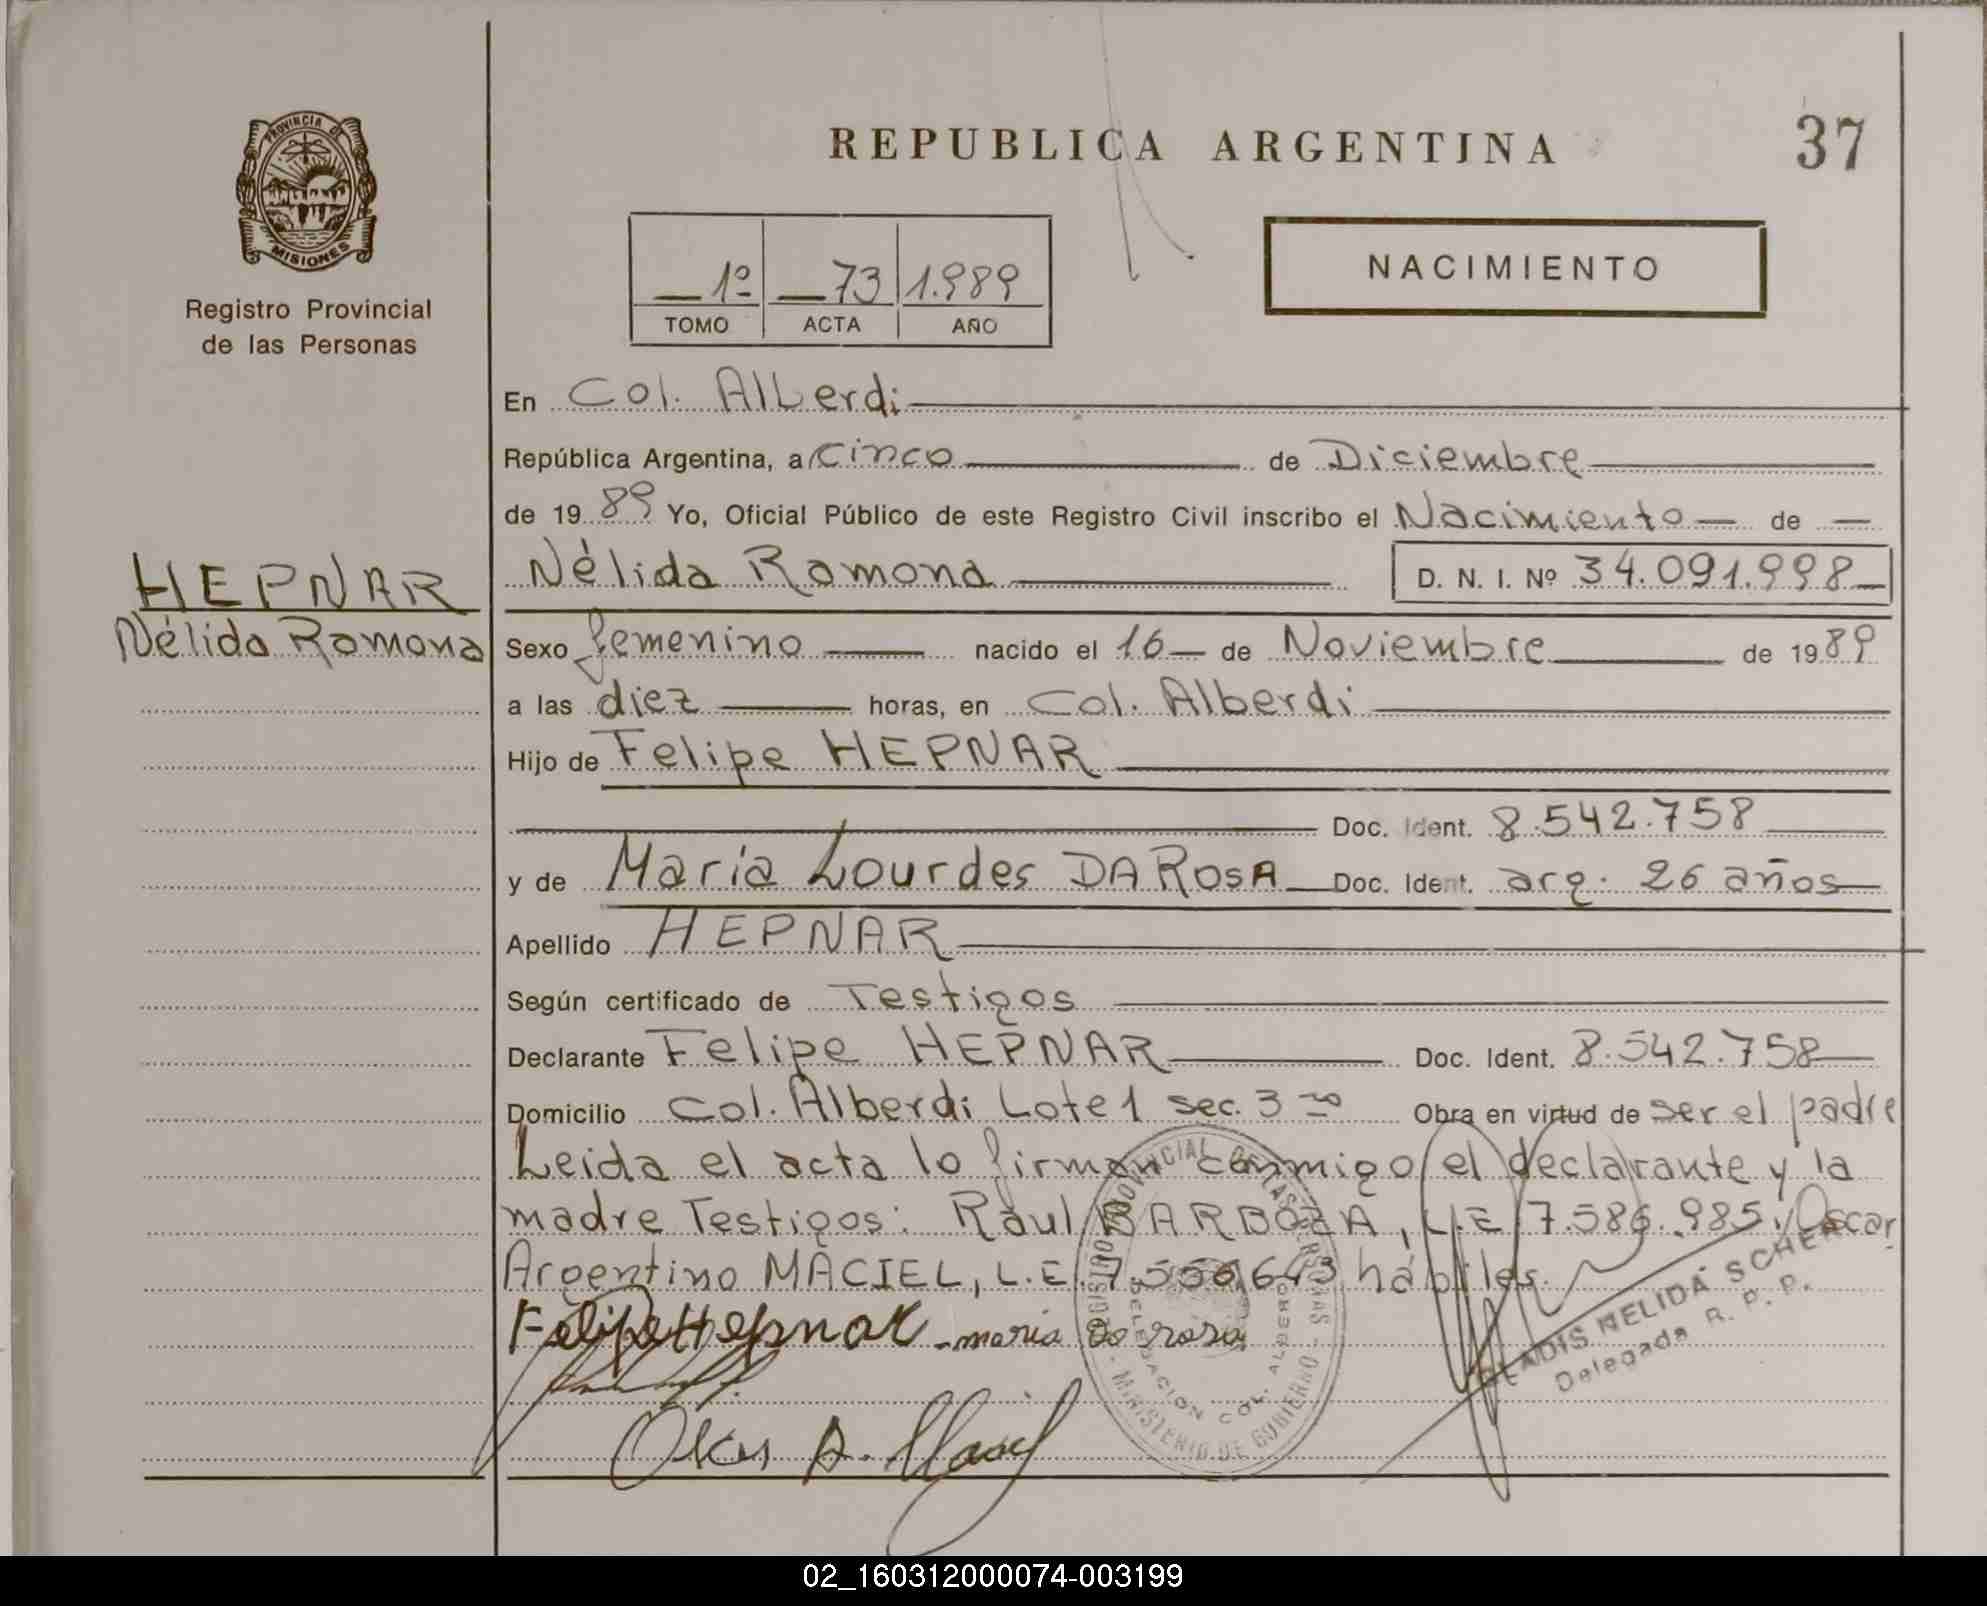 PROVINCIA DE
MISIONES
Registro Provincial
de las Personas
REPUBLICA ARGENTINA
37
1º 73 1.989
TOMO ACTA AÑO
NACIMIENTO
En Col. Alberdi
República Argentina, a cinco de Diciembre
de 1989 Yo, Oficial Público de este Registro Civil inscribo el Nacimiento de
Nélida Ramona D. N. I. Nº 34.091.998
HEPNAR
Nélida Ramona
Sexo femenino nacido el 16 de Noviembre de 1989
a las diez horas, en Col. Alberdi
Hijo de Felipe HEPNAR
Doc. Ident. 8.542.758
y de María Lourdes DA ROSA Doc. Ident. arg. 26 años
Apellido HEPNAR
Según certificado de Testigos
Declarante Felipe HEPNAR Doc. Ident. 8.542.758
Domicilio Col. Alberdi Lote 1 sec. 3ra Obra en virtud de ser el padre
Leida el acta lo firman conmigo el declarante y la
madre Testigos: Raul BARBOZA, L.E 7.586.985, Oscar
Argentino MACIEL, L.E. 7.556.643 hábiles.
Felipe Hepnar maria Da rosa
REGISTRO PROVINCIAL DE LAS PERSONAS
DELEGACION COL. ALBERDI
MINISTERIO DE GOBIERNO
GLADIS NELIDA SCHER
Delegada R. P. P.
02_160312000074-003199